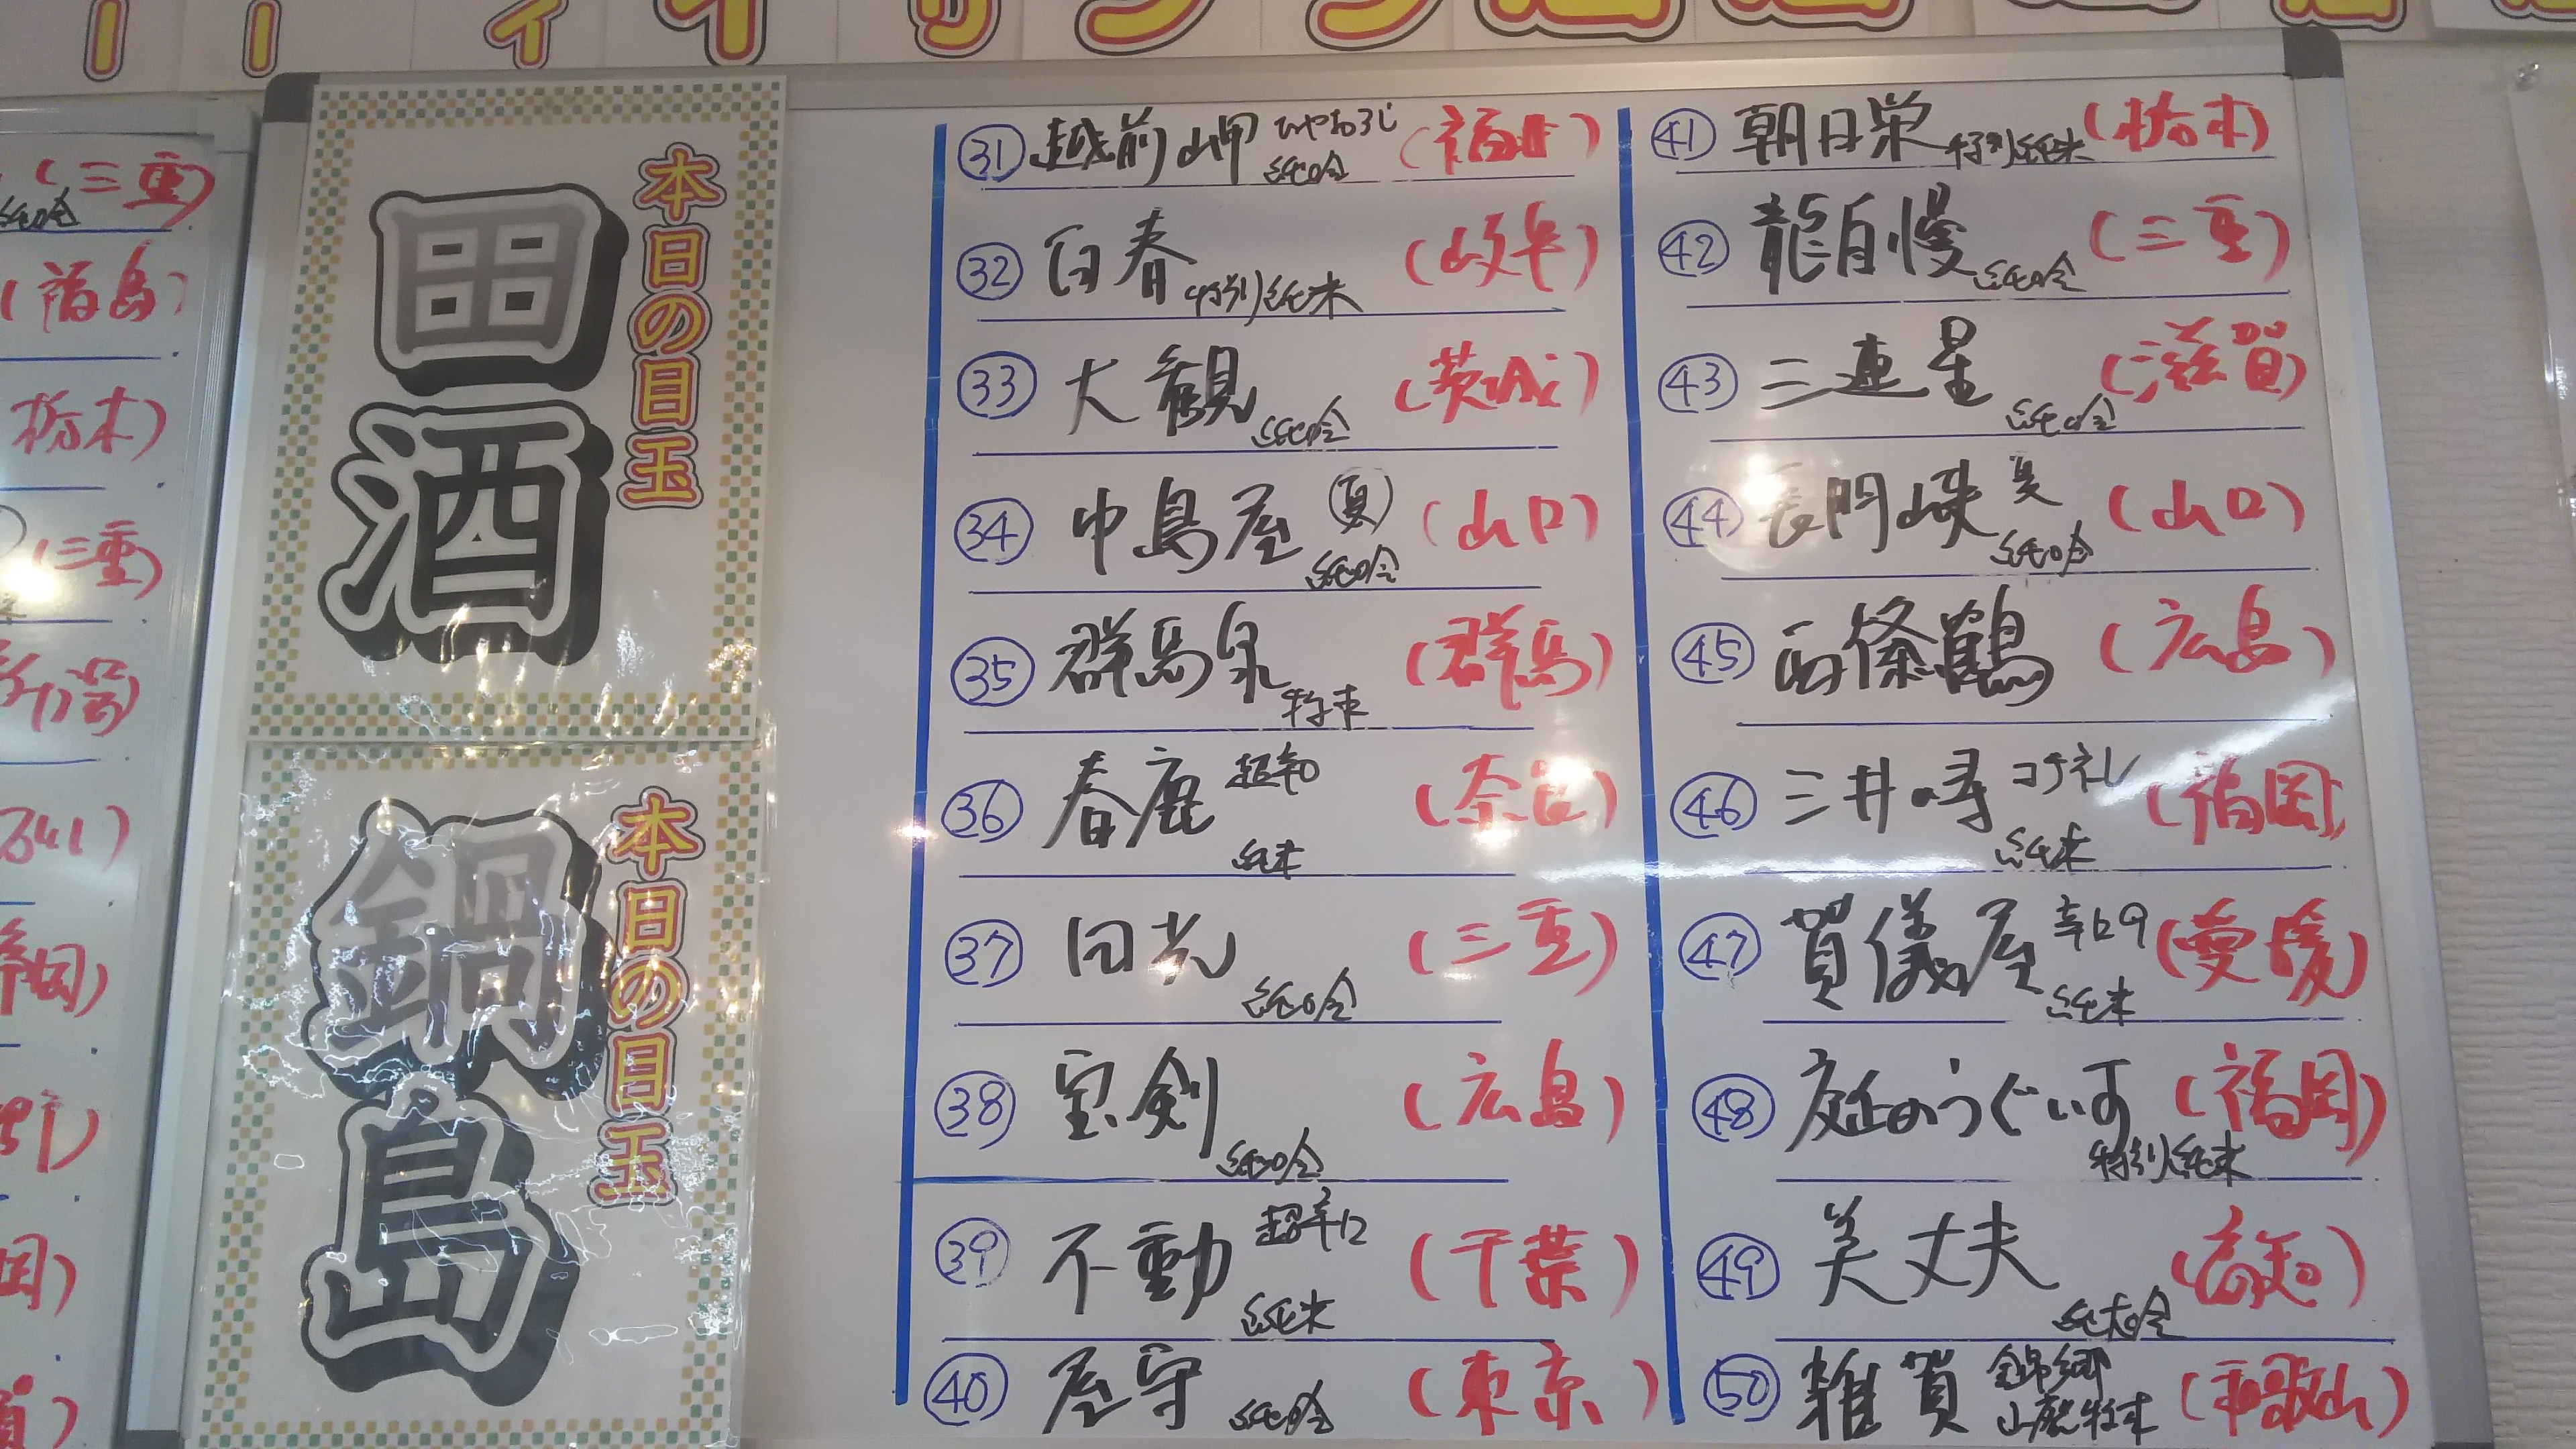 ーーィイリ
(三重)
純吟
(福島)
栃木)
(三重)
岡)
本日の目玉
田酒
本日の目玉
鍋島
㉛ 越前岬 ひやおろし 純吟 (福井)
㉜ 百春 特別純米 (岐阜)
㉝ 大観 純吟 (茨城)
㉞ 中島屋 (夏) 純吟 (山口)
㉟ 群馬泉 特純 (群馬)
㊱ 春鹿 超辛口 純米 (奈良)
㊲ 田光 純吟 (三重)
㊳ 宝剣 純吟 (広島)
㊴ 不動 超辛口 純米 (千葉)
㊵ 屋守 純吟 (東京)
㊶ 朝日栄 特別純米 (栃木)
㊷ 龍自慢 純吟 (三重)
㊸ 三連星 純吟 (滋賀)
㊹ 長門峡 夏 純吟 (山口)
㊺ 西條鶴 (広島)
㊻ 三井の寿 コチネレ 純米 (福岡)
㊼ 賀儀屋 辛口9 純米 (愛媛)
㊽ 庭のうぐいす 特別純米 (福岡)
㊾ 美丈夫 純大吟 (高知)
㊿ 雑賀 錦郷 山廃特純 (和歌山)